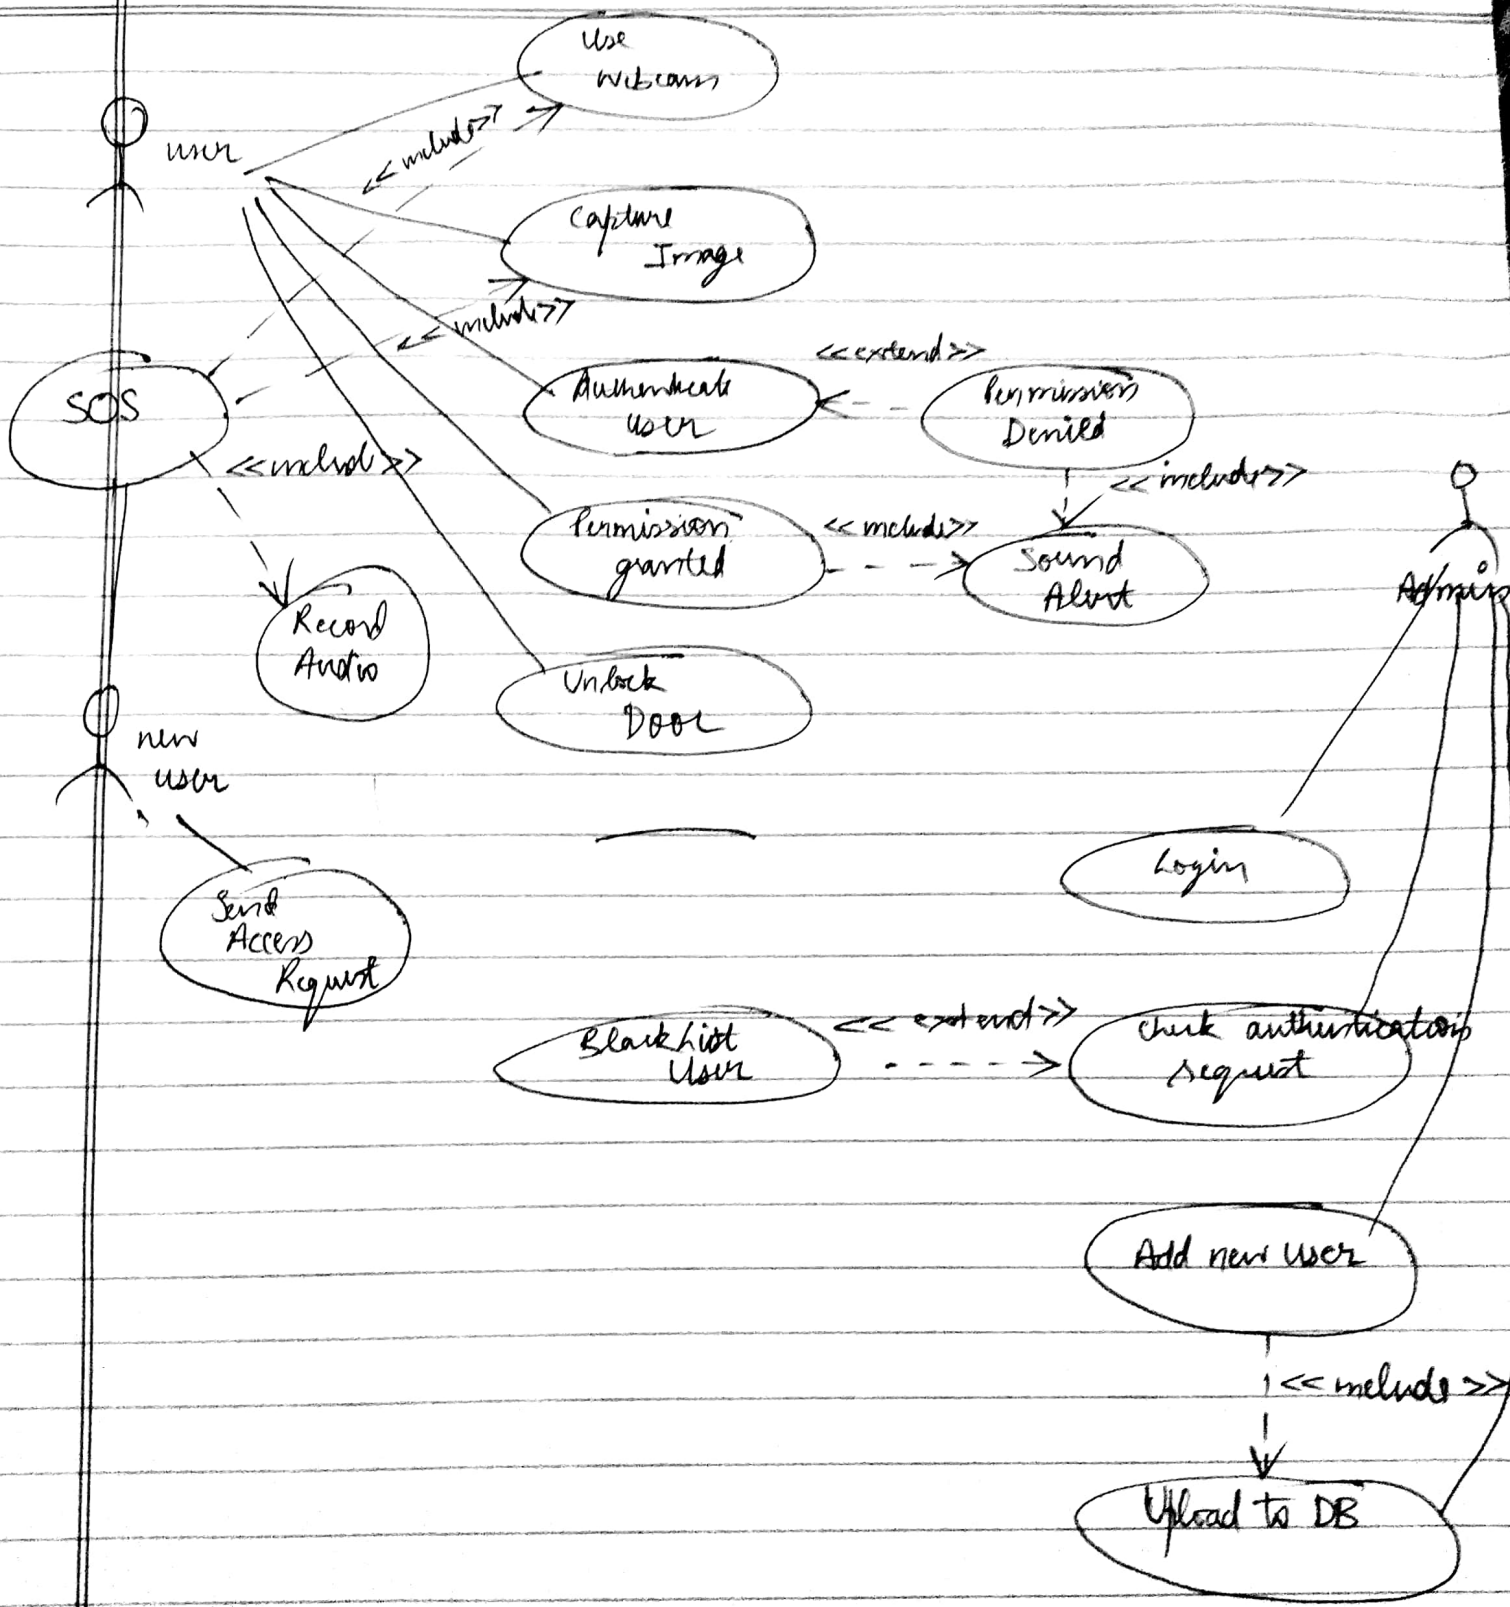 Use
Webcam
user
<<include>>
Capture
Image
<<include>>
SOS
<<extend>>
Authenticate
User
Permission
Denied
<<include>>
<<include>>
Permission
granted
<<include>>
Sound
Alert
Admin
Record
Audio
Unlock
Door
new
user
Login
Send
Access
Request
BlackList
User
<<extend>>
Check authentication
request
Add new user
<<include>>
Upload to DB